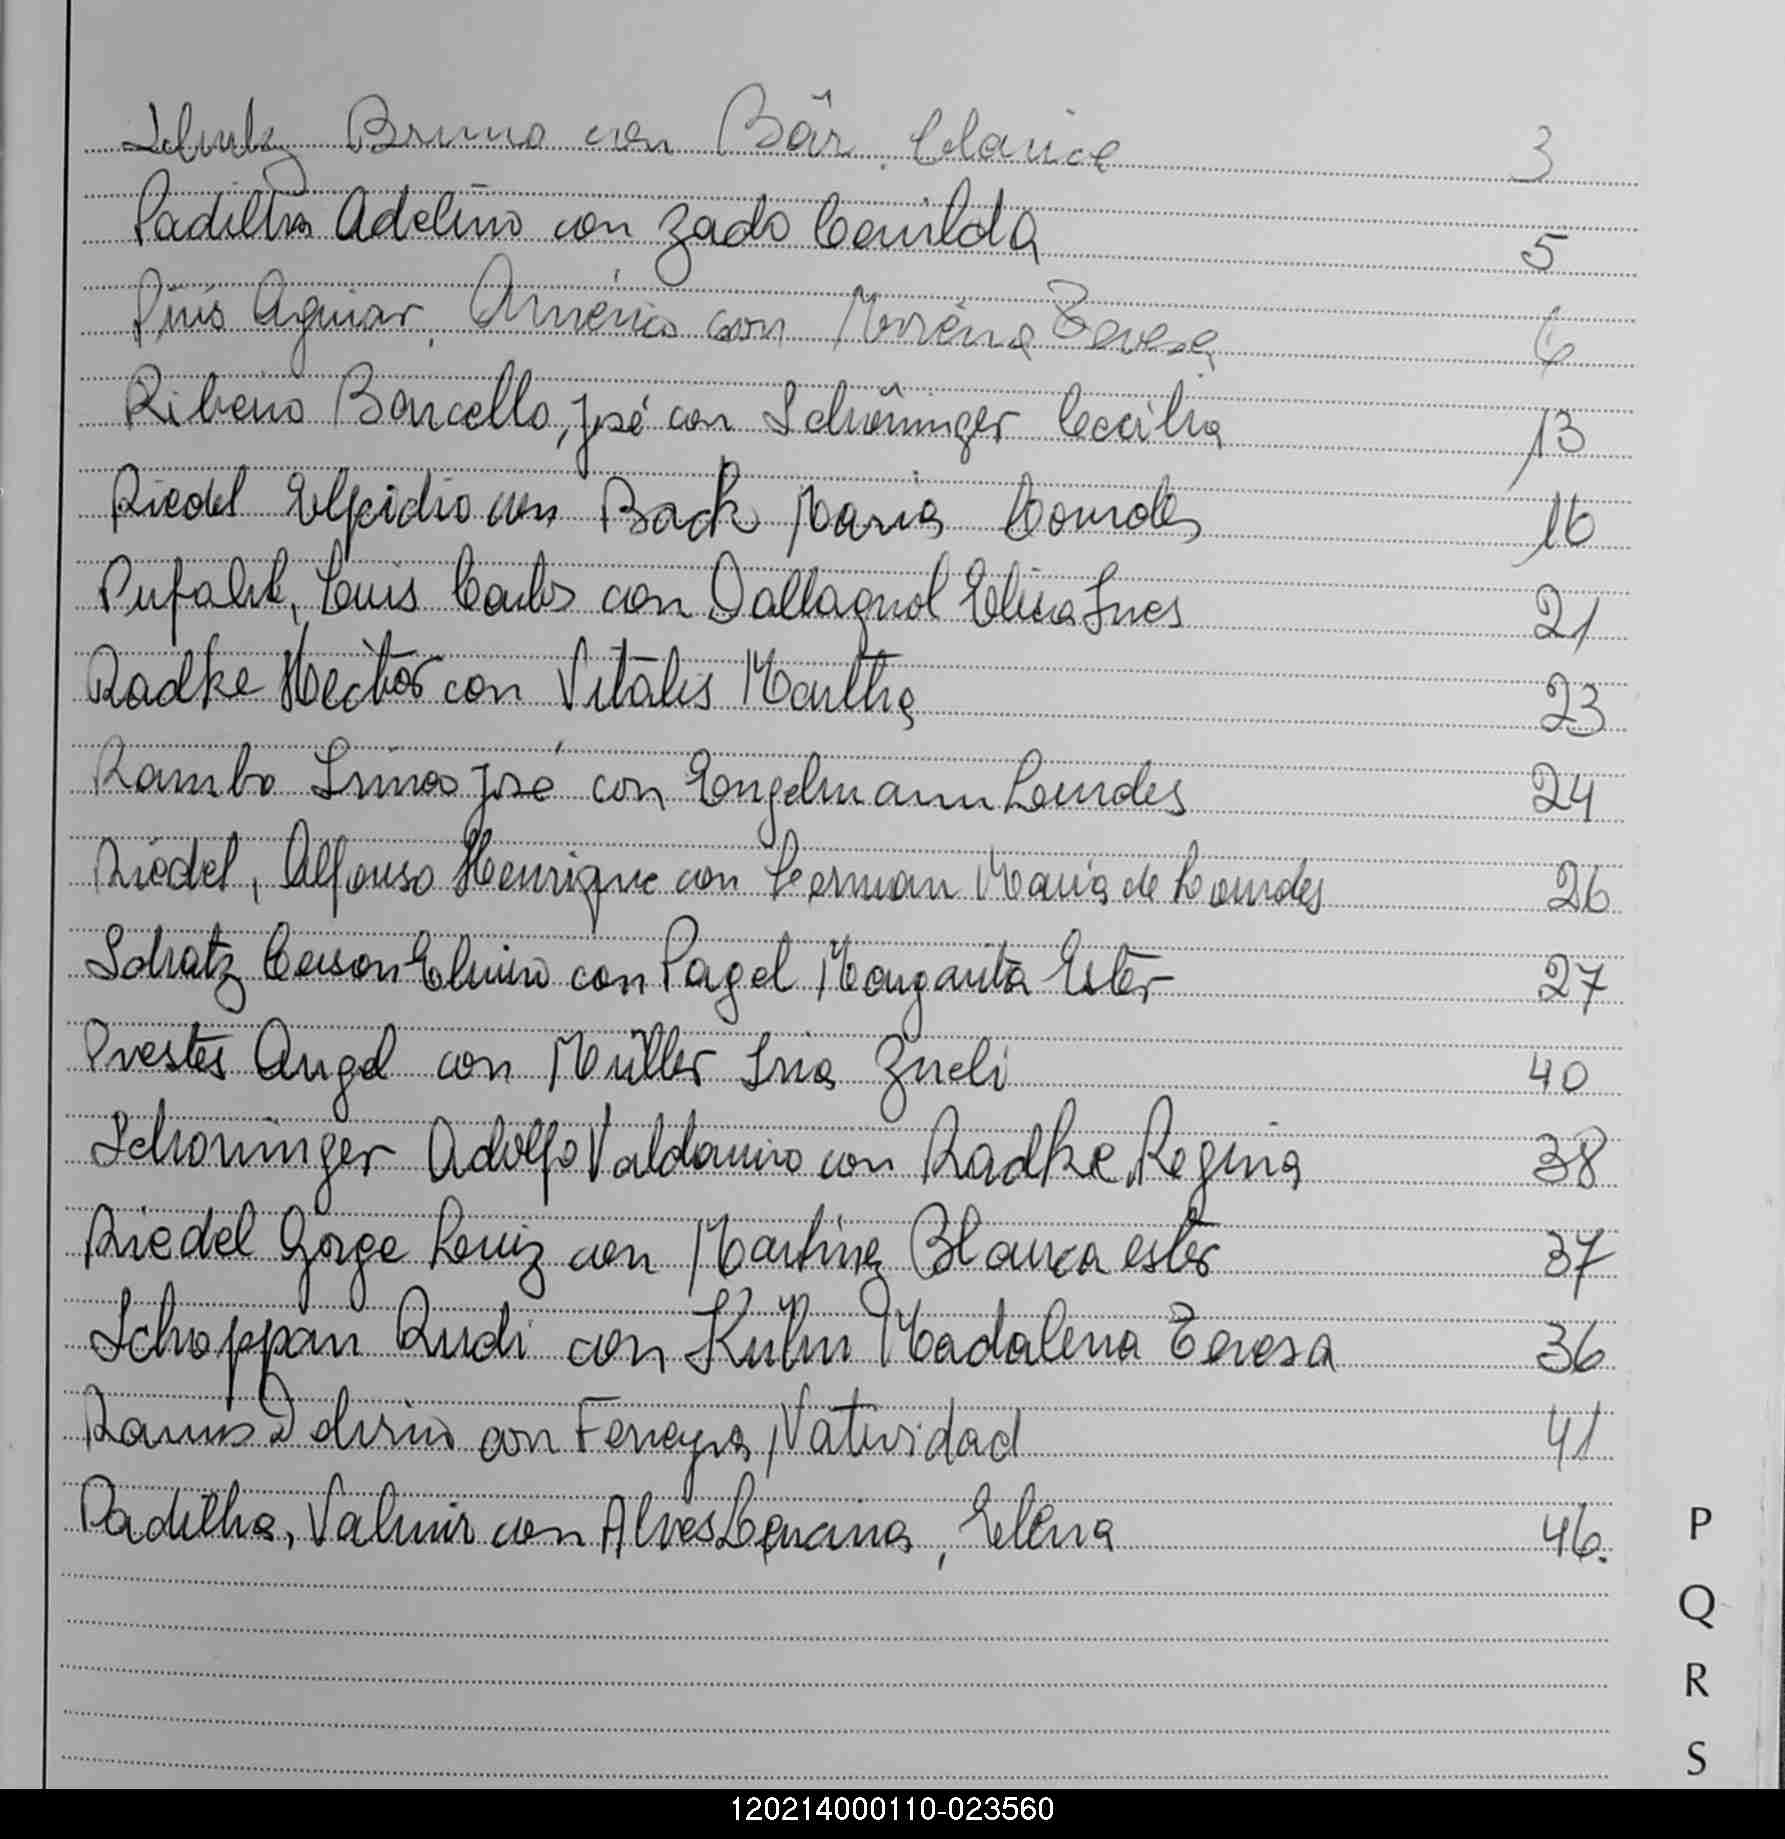 Schulz Bruno con Bâr, Clarice 3
Padilha Adelino con Zado Cenilda 5
Pinis Aguiar, Américo con Morena Teresa 6
Ribeiro Barcello, José con Schöninger Cecilia 13
Riedel Elpidio con Back Maria Lourdes 16
Pufahl, Luis Carlos con Dallagnol Elisa Ines 21
Radke Hector con Vitalis Martha 23
Rambo Irineo José con Engelmann Lourdes 24
Riedel, Alfonso Henrique con German Maria de Lourdes 26
Schatz Gerson con Pagel Margarita Ester 27
Prestes Angel con Müller Iria Zneli 40
Schoninger Adolfo Valdamiro con Radke Regina 38
Riedel Gorge Luiz con Martinez Blanca ester 37
Schoppan Rudi con Kuhn Madalena Teresa 36
Ramos Delirio con Ferreyra, Natividad 41
Padilha, Valmir con Alves, Elena 46.
P
Q
R
S
120214000110-023560